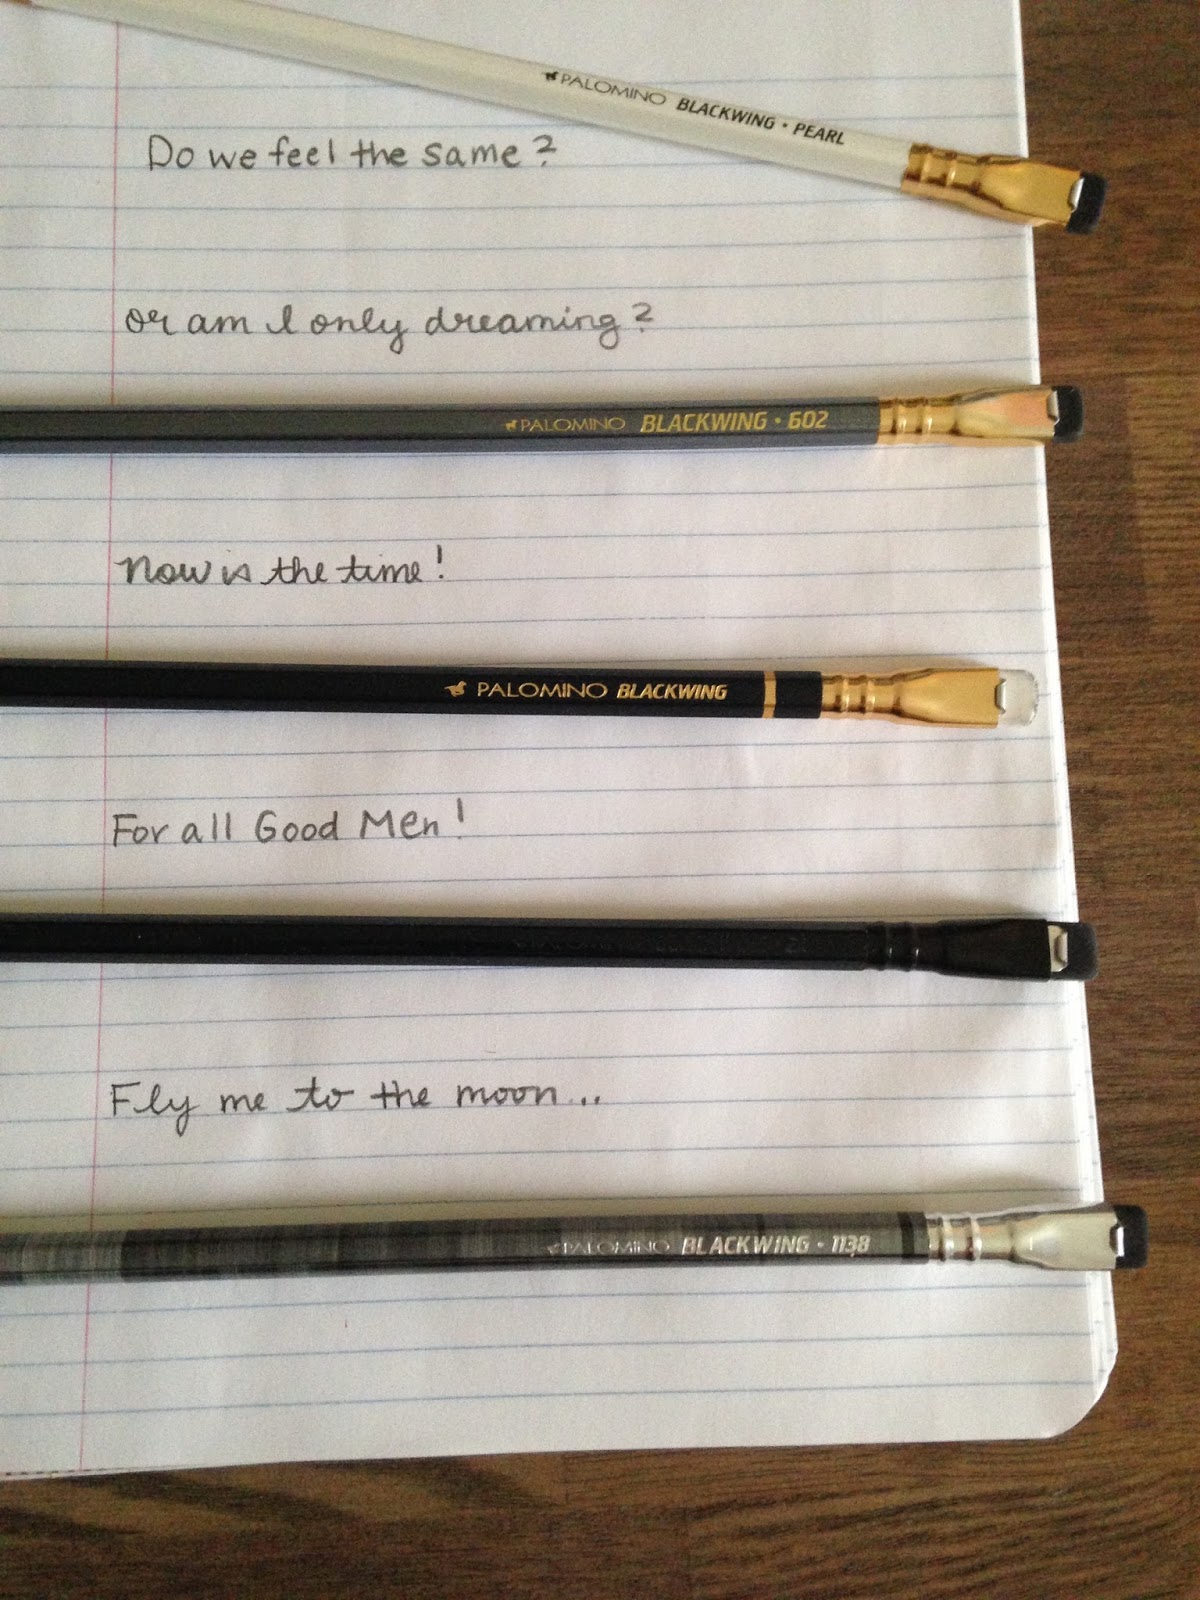 PALOMINO BLACKWING • PEARL
Do we feel the same?
or am I only dreaming?
PALOMINO BLACKWING • 602
Now is the time!
PALOMINO BLACKWING
For all Good Men!
Fly me to the moon...
PALOMINO BLACKWING • 1138